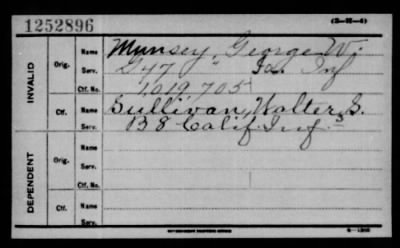 1252896
(3-H-4)
INVALID
Orig.
Name Munsey, George W.
Serv. G 47 " Ia. Inf
Ctf. No. 1,019,705
Ctf.
Name Sullivan, Walter, S.
Serv. B 8 Calif Inf
DEPENDENT
Orig.
Name
Serv.
Ctf. No.
Ctf.
Name
Serv.